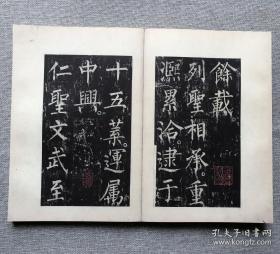 餘載
列聖相承重
熙累洽逮于
十五葉運属
中興
仁聖文武至
孔夫子旧书网